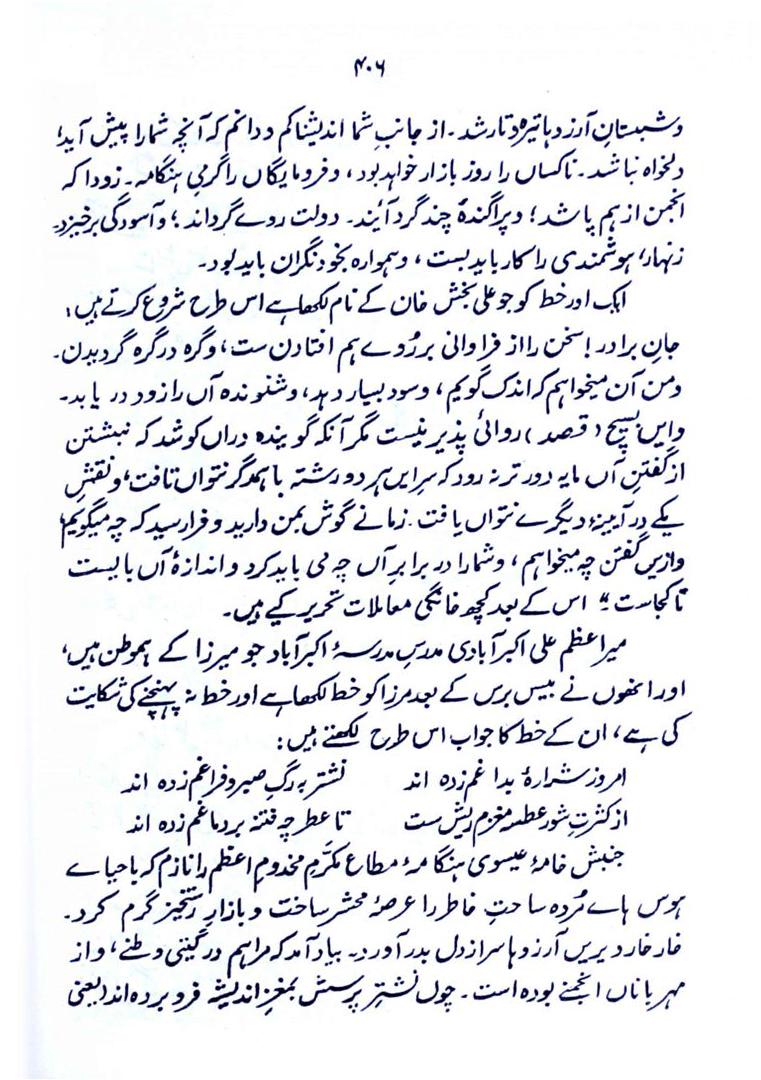 ۴۰۶
وشبستانِ آرزوہا تیرہ و تار شد۔ از جانبِ شما اندیشناکم و دانم کہ آنچہ شمارا پیش آید؛
دلخواہ نباشد۔ ناکساں را روز بازار خواہد بود، و فرومایگاں را گرمیِ ہنگامہ۔ زودا کہ
انجمن از ہم پاشد؛ و پراگندۂ چند گرد آیند۔ دولت روے گرداند؛ و آسودگی برخیزد۔
زنہار! ہوشمندی را کار باید بست، و ہموارہ بخود نگران باید بود۔
ایک اور خط کو جو علی بخش خان کے نام لکھا ہے اس طرح شروع کرتے ہیں:
جانِ برادر! سخن را از فراوانی بر رُوے ہم افتادن ست، و گرہ در گرہ گردیدن۔
ومن آن میخواہم کہ اندک گویم، و سود بسیار دہد، و شنوندہ آں را زود در یابد۔
واین بسیچ (قصد) روائی پذیر نیست مگر آنکہ گویندہ دراں کوشد کہ نبشتن
از گفتن آں مایہ دور تر نہ رود کہ سرِ ایں ہر دو رشتہ باہمدگر نتواں تافت، و نقشِ
یکے در آیینۂ دیگرے نتواں یافت۔ زمانے گوش بمن دارید و فرا رسید کہ چہ میگویم،
وازیں گفتن چہ میخواہم، و شمارا در برابرِ آں چہ می باید کرد و اندازۂ آں بایست
تا کجاست" اس کے بعد کچھ خانگی معاملات تحریر کیے ہیں۔
میر اعظم علی اکبرآبادی مدرسِ مدرسۂ اکبرآباد جو میرزا کے ہموطن ہیں،
اور انھوں نے بیس برس کے بعد مرزا کو خط لکھا ہے اور خط نہ پہنچنے کی شکایت
کی ہے، ان کے خط کا جواب اس طرح لکھتے ہیں:
امروز شرارۂ بداغم زدہ اند نشتر بہ رگِ صبر و فراغم زدہ اند
از کثرتِ شورِ عطسہ مغزم ریش ست تا عطرِ چہ فتنہ بر دماغم زدہ اند
جنبش خامۂ عیسوی ہنگامۂ مطاع مکرّم مخدومِ اعظم را نازم کہ باحیاے
ہوس ہاے مُردہ ساحتِ خاطر را عرصۂ محشر ساخت و بازارِ رستخیز گرم کرد۔
خار خار دیریں آرزوہا سر از دل بدر آورد۔ بیاد آمد کہ مرا ہم در گیتی وطنے، و از
مہرباناں انجمنے بودہ است۔ چوں نشترِ پرسش بمغزِ اندیشہ فرو بردہ اند (یعنی